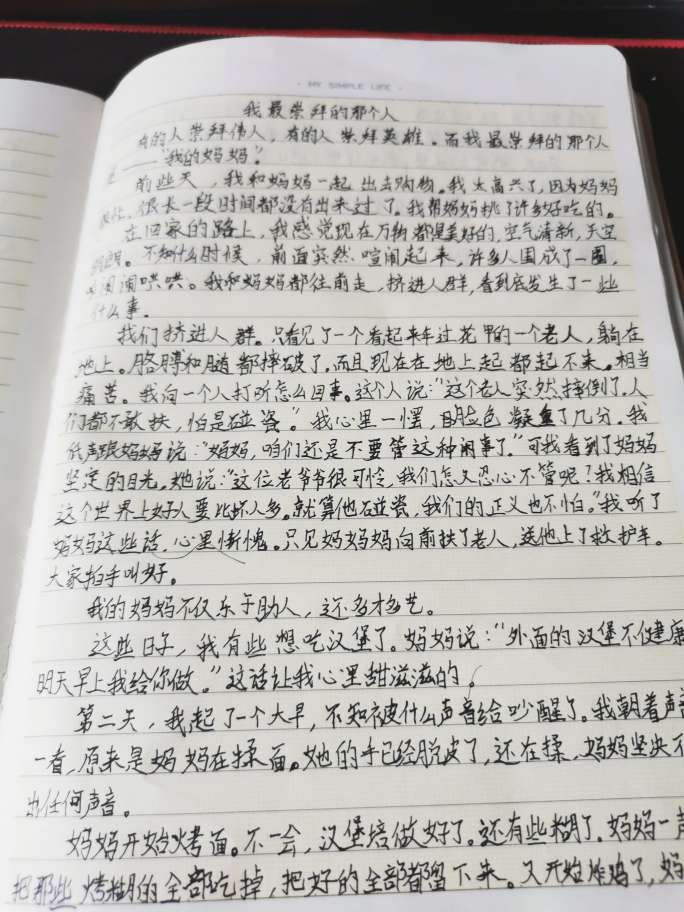 · MY SIMPLE LIFE ·
我最崇拜的那个人
有的人崇拜伟人，有的人崇拜英雄。而我最崇拜的那个人
是——“我的妈妈”。
前些天，我和妈妈一起出去购物。我太高兴了，因为妈妈
很长一段时间都没有出来过了。我帮妈妈挑了许多好吃的。
在回家的路上，我感觉现在万物都是美好的，空气清新，天空
晴朗。不知什么时候，前面突然喧闹起来，许多人围成了一圈，
闹闹哄哄。我和妈妈都往前走，挤进人群，看到底发生了一些
什么事。
我们挤进人群。只看见了一个看起来年过花甲的一个老人，躺在
地上。胳膊和腿都摔破了，而且现在在地上起都起不来。相当
痛苦。我向一个人打听怎么回事。这个人说：“这个老人突然摔倒了，人
们都不敢扶，怕是碰瓷。”我心里一惊，脸色凝重了几分。我
低声跟妈妈说：“妈妈，咱们还是不要管这种闲事了。”可我看到了妈妈
坚定的目光。她说：“这位老爷爷很可怜，我们怎么忍心不管呢？我相信
这个世界上好人要比坏人多。就算他碰瓷，我们的正义也不怕。”我听了
妈妈这些话，心里惭愧。只见妈妈妈向前扶了老人，送他上了救护车。
大家拍手叫好。
我的妈妈不仅乐于助人，还多才多艺。
这些日子，我有些想吃汉堡了。妈妈说：“外面的汉堡不健康
明天早上我给你做。”这话让我心里甜滋滋的。
第二天，我起了一个大早，不知被什么声音给吵醒了。我朝着声音
一看，原来是妈妈在揉面。她的手已经脱皮了，还在揉，妈妈坚决不
出任何声音。
妈妈开始烤面。不一会，汉堡培做好了。还有些糊了，妈妈一声
把那些烤糊的全部吃掉，把好的全部都留下来。又开始炸鸡了，妈